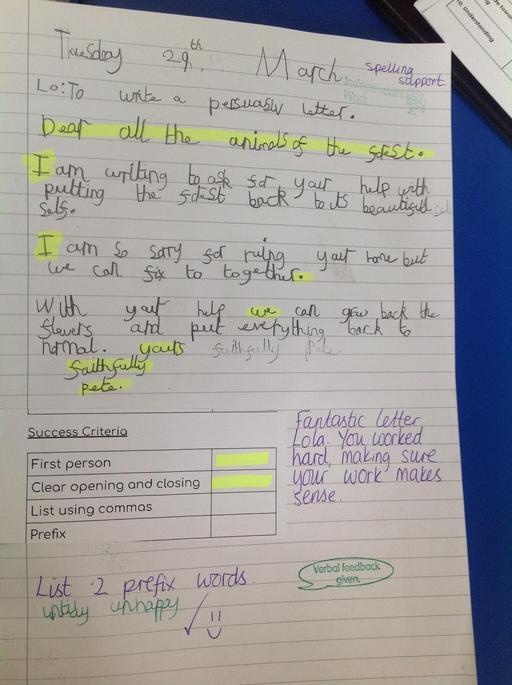 Tuesday 29th March
spelling support
Independent Work
Lo: To write a persuasiv letter.
Dear all the animals of the forest.
I am writing to ask for your help with
putting the forest back to its beautiful
self.
I am so sorry for ruing your home but
we can fix to together.
With your help we can grow back the
flowers and put everything back to
normal. yours faithfully Pete.
faithfully
pete.
Success Criteria
First person
Clear opening and closing
List using commas
Prefix
Fantastic letter
Lola. You worked
hard, making sure
your work makes
sense.
List 2 prefix words.
untidy unhappy
Verbal feedback
given.